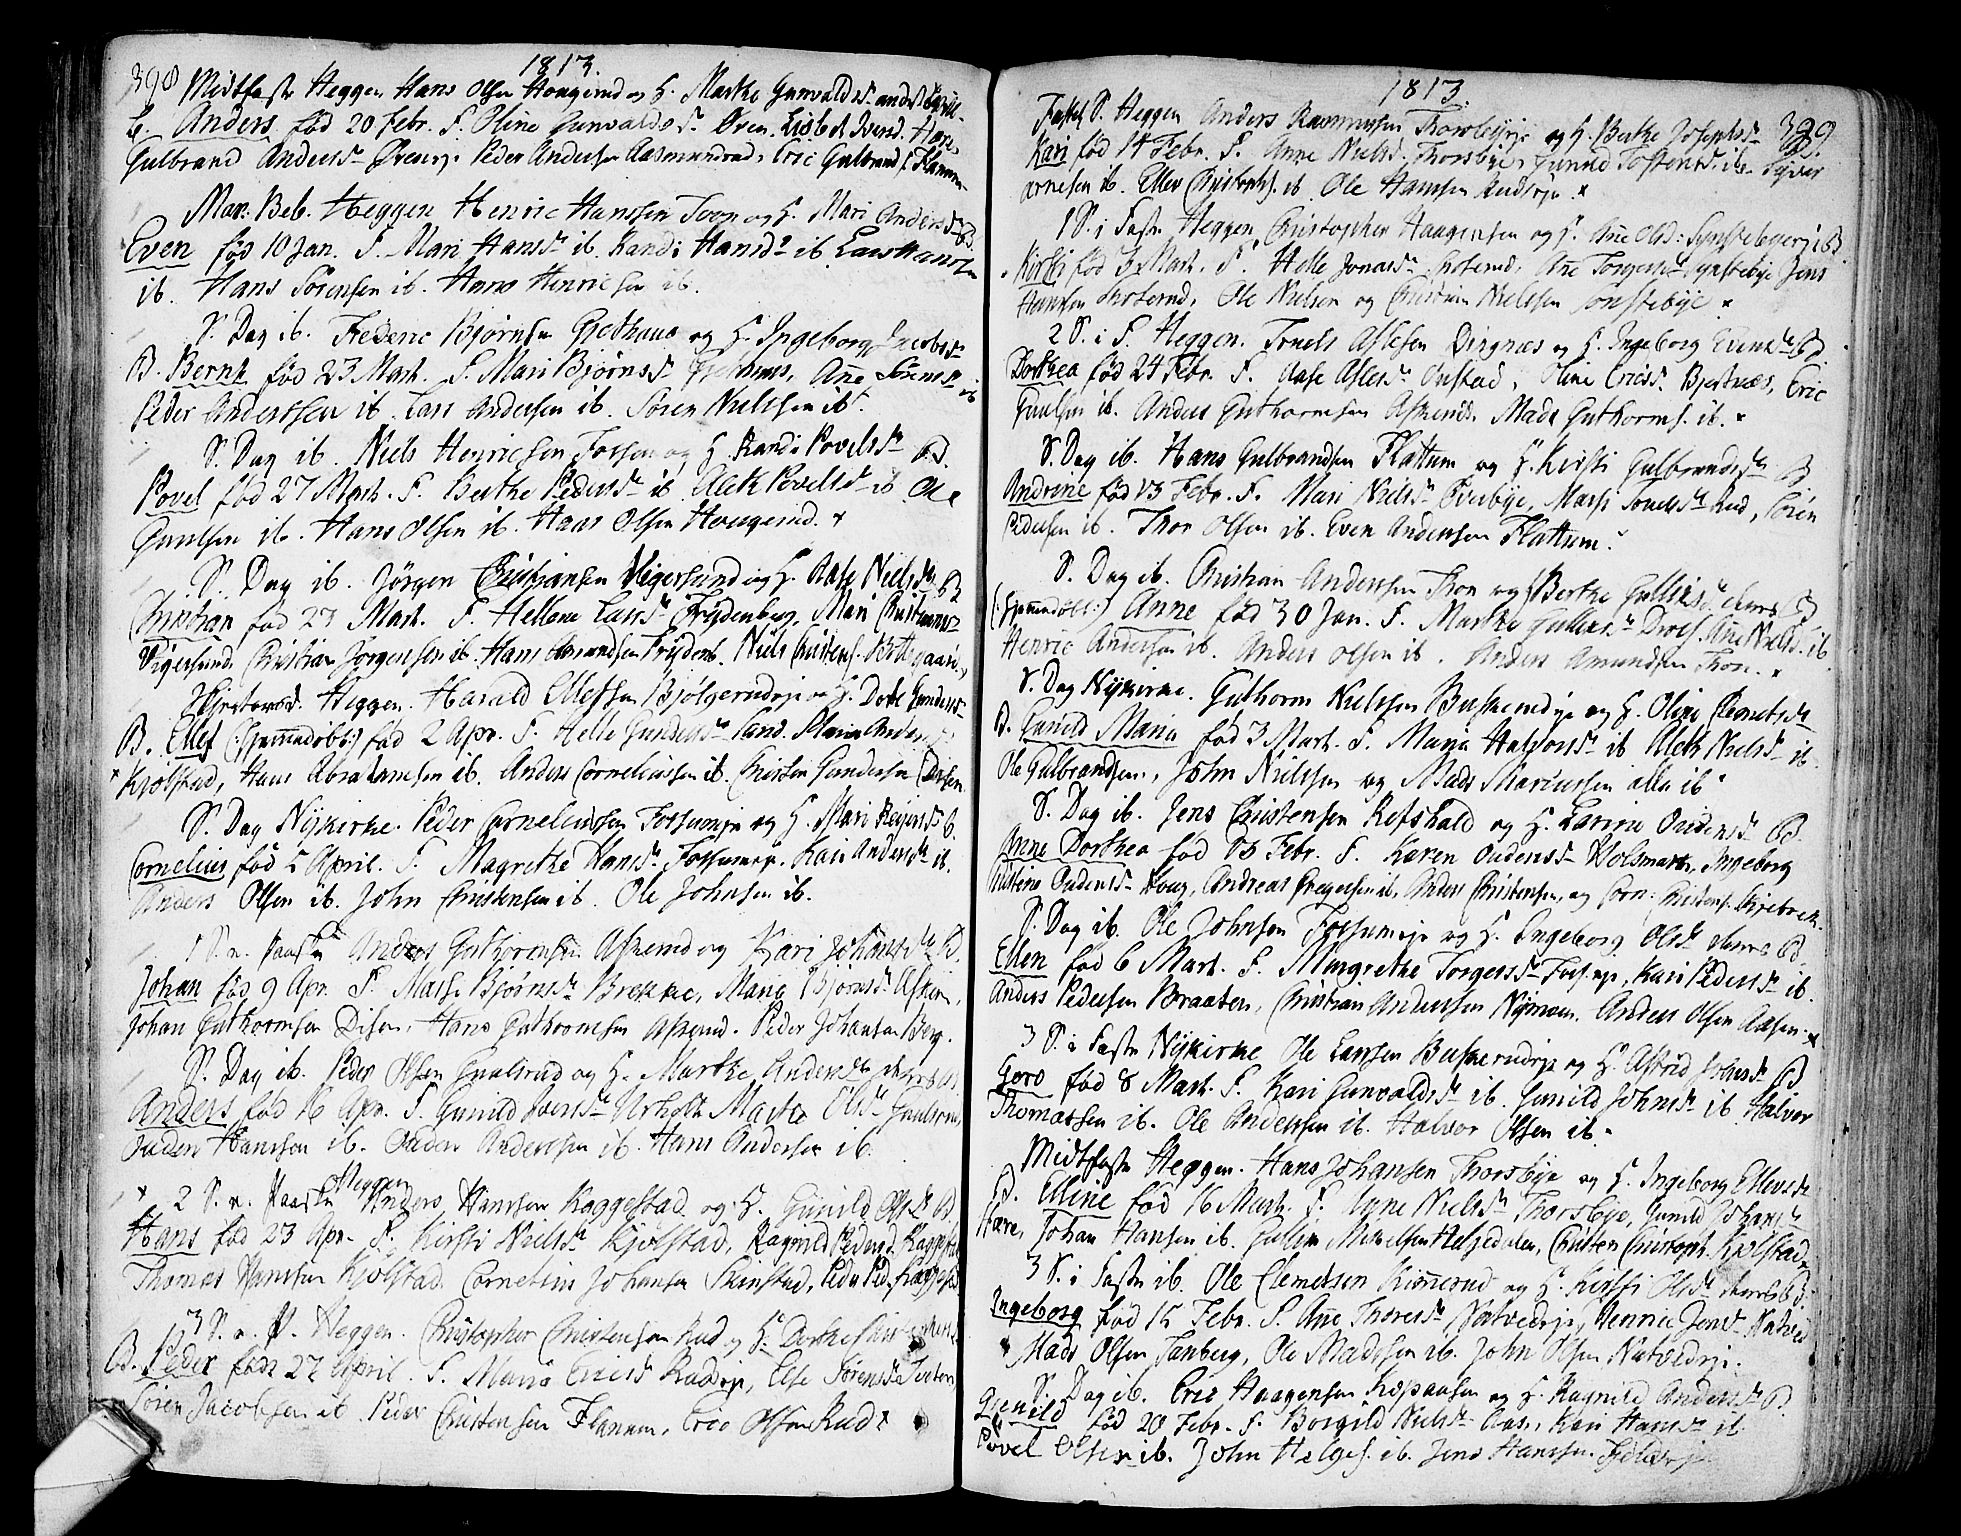 398
1813.
Midtfaste Heggen Hans Olsen Hougerud og H. Marthe Gunvaldsd.
B. Anders fød 20 febr. F. Oline Gunvaldsd. Øren. Lisbet Iversd.
Gulbrand Andersd. Peder Andersen Aasmundrud, Eric Gulbrands. Flannum
Mar. Beb. Heggen Henric Hanssen Toon og H. Mari Andersd. B.
Even fød 10 Jan. F. Mari Hansd. ib. Randi Hansd. ib. Lars Hanssen
ib. Hans Sörensen ib. Hans Henricsen ib.
S. Dag ib. Frederic Bjørnsen Gjethuus og H. Ingeborg Jacobsd.
B. Bernt fød 23 Mart. F. Mari Bjørnsd. Gjethuus, Ane Sörensd. ib
Peder Anderssen ib. Lars Andersen ib. Sören Nielssen ib.
S. Dag ib. Niels Henricsen Fossen og H. Randi Povelsd. B.
Povel fød 27 Mart. F. Berthe Pedersd. ib. Aleth Povelsd. ib Ole
Guulsen ib. Hans Olsen ib. Hans Olsen Hougerud.
S. Dag ib. Jörgen Christiansen Vigersund og H. Aase Nielsd. B
Christian fød 23 Mart. F. Hellene Larsd. Frydenberg, Mari Christiansd.
Vigersund. Christian Jorgensen ib. Hans Amundsen Frydenb. Niels Christens.
Heggen. Harald Ellefsen Bjølgerudeje og H. Dorte Gundersd.
B. Ellef (: hjemmedöbt:) fød 2 Apr. F. Helle Gundersd. Sand. Maria Anders
Kjølstad, Hans Abrahamsen ib. Anders Corneliussen ib. Christen Gundersen
S. Dag Nykirke. Peder Corneliussen Fossumeje og H. Mari Reyersd. B.
Cornelius fød 5 April. F. Magrethe Hansd. Fossumeje. Kari Andersd. ib.
Anders Olsen ib. John Christensen ib. Ole Johnsen ib.
1 S. e. Paaske Anders Guthormsen Askerud og Kari Johansd. B.
Johan fød 9 Apr. F. Masse Bjørnsd. Brekke, Marie Bjørnsd. Asker
Johan Guthormsen Disen, Hans Guthormsen Askerud. Peder Johansen Berg.
S. Dag ib. Peder Olsen Guulsrud og H. Marthe Andersd.
Anders fød 16 Apr. F. Gunild Iversd. Urholt Marte Olsd. Guulsrud,
Ouden Hanssen ib. Ouden Anderssen ib. Hans Andersen ib.
2 S. e. Paaske Heggen Anders Hanssen Kaggestad og H. Gunild Olsd. B.
Hans fød 23 Apr. F. Kirsti Nielsd. Kjølstad, Ragnild Pedersd. Kaggestad
Thomas Hanssen Kjølstad. Cornelius Johansen Skinstad, Peder Ped. Kaggestad
3 S. e. P. Heggen. Christopher Christensen Rud og H. Dorthe
B. Peder fød 22 April. F. Maria Ericsd. Rudeje, Else Sørensd.
Sören Jacobsen ib Peder Christensen Flannum, Eric Olsen Rud
1813.
399
Fastel. S. Heggen Anders Rasmussen Thorsbyeje og H. Berthe Josephsd.
Kari fød 14 Febr. F. Anne Nielsd. Thorsbye, Gunild Tostensd. ib. Syver
Arnesen ib. Ellev Christophs. ib. Ole Hanssen Rudseje
1 S. i Faste Heggen Christopher Haagensen og H. Ane Olsd. B.
Kirsti fød 3 Mart. F. Helle Jonasd. Ane Torgersd. Jens
Hanssen Ole Nielsen og Christian Nielssen
2 S. i F. Heggen. Troels Aslesen Dingnæs og H. Ingeborg Evensd. B.
Dorthea fød 24 Febr. F. Aase Aslesd. Onstad, Oline Ericsd. Bjertnæs, Eric
Guulsen ib. Anders Guthormsen Askerud. Mads Guthorms. ib.
S. Dag ib. Hans Gulbrandsen Flattum og H. Kirsti Gulbrandsd. B
Andrine fød 13 Febr. F. Mari Nielsd. Overbye, Massi Troelsd. Rud, Sören
Pedersen ib. Thor Olsen ib. Even Andersen Flattum.
S. Dag ib. Christian Anderssen Thon og H. Berthe Gulliksd. B
(: hjemmedöbt:) Anne fød 30 Jan. F. Marthe Gulliksd. Ane Nielsd. ib.
Henric Andersen ib. Anders Olsen ib. Anders Amundsen Thon.
S. Dag Nykirke. Guthorm Nielssen Buskerudeje og H. Oline Berntsd.
B. Gunild Maria fød 3 Mart. F. Maria Halvorsd. ib Aleth Nielsd. ib.
Ole Gulbrandsen, John Nielssen og Mads Mariussen alle ib
S. Dag ib. Jens Christensen Refshald og H. Larine Oudensd. B.
Anne Dorthea fød 13 Febr. F. Karen Oudensd. Holsmark, Ingeborg
Christine Oudensd. Houg, Andreas Gregersen ib, Anders Christensen, og Corn: Christens.
S. Dag ib. Ole Johnsen Fossumeje og H. Ingeborg Olsd. B.
Ellen fød 6 Mart. F. Margrethe Torgersd. Fossumeje, Kari Pedersd. ib.
Anders Pedersen Braaten, Christian Anderssen Nymoen. Anders Olsen Aasen.
3 S. i Faste Nykirke Ole Larssen Buskerudeje og H. Astrid Johnsd. B
Goro fød 8 Mart. F. Kari Gunvaldsd. ib. Gunild Johnsd. ib. Halvor
Thomassen ib. Ole Anderssen ib. Halvor Olsen ib.
Midtfaste Heggen. Hans Johansen Thorsbye og H. Ingeborg Ellevsd.
B. Elline fød 16 Mart. F. Agne Nielsd. Thorsbye, Gunild Johansd.
Hære, Johan Hansen ib. Gullik Mikkelsen Helgedalen, Christen Christoph. Kjølstad
3 S. i Faste ib. Ole Clemetsen Kinnerud og H. Kirsti Olsd. B.
Ingeborg fød 15 Febr. F. Ane Thoresd. Natvedeje, Henric Jensd. Natved
Mads Olsen Tanberg, Ole Madssen ib. John Olsen Natvedeje.
S. Dag ib. Eric Haagensen Kopaasen og H. Ragnild Andersd. B.
Gunild fød 20 Febr. F. Borgild Nielsd. Aas, Kari Hansd. ib
Povel Olsen ib. John Helges. ib. Jens Hanssen.